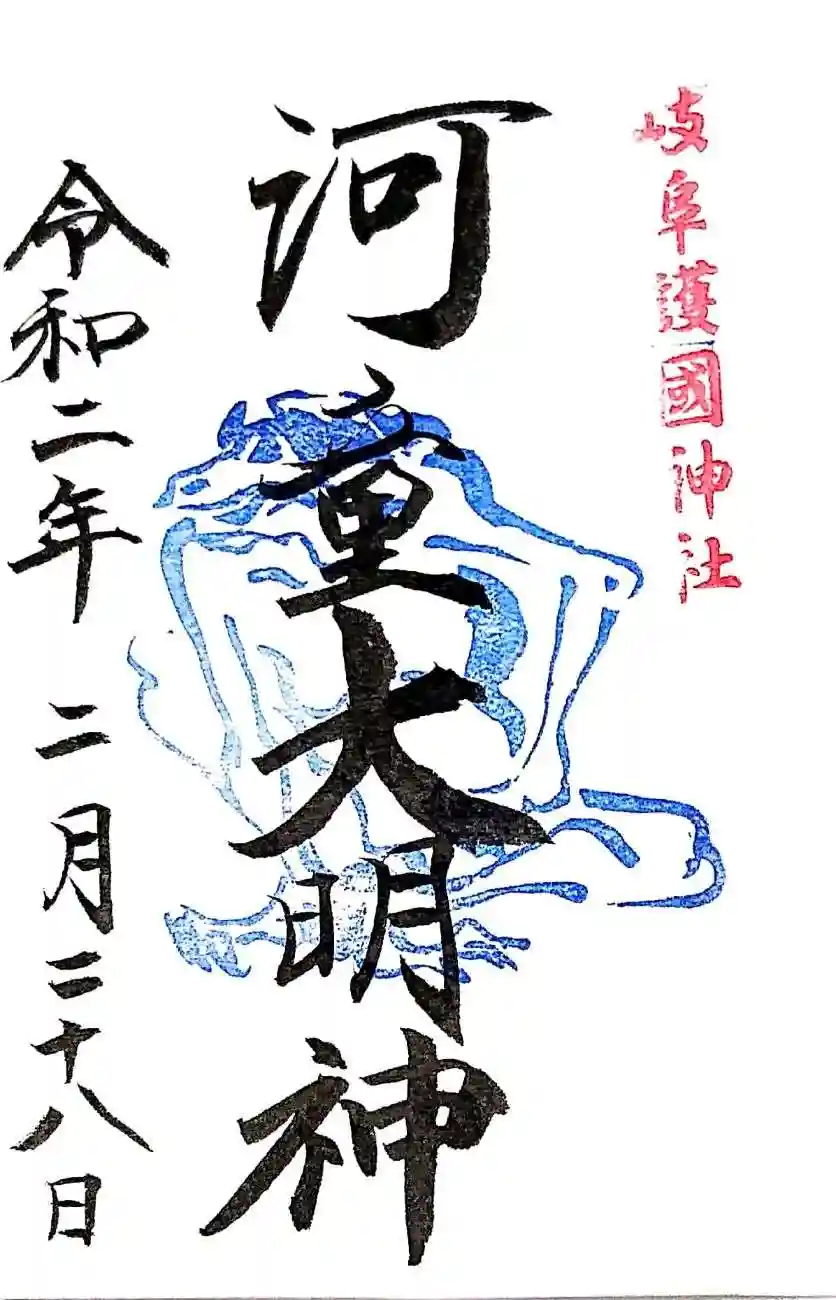 岐阜護國神社
河童大明神
令和二年 二月二十八日